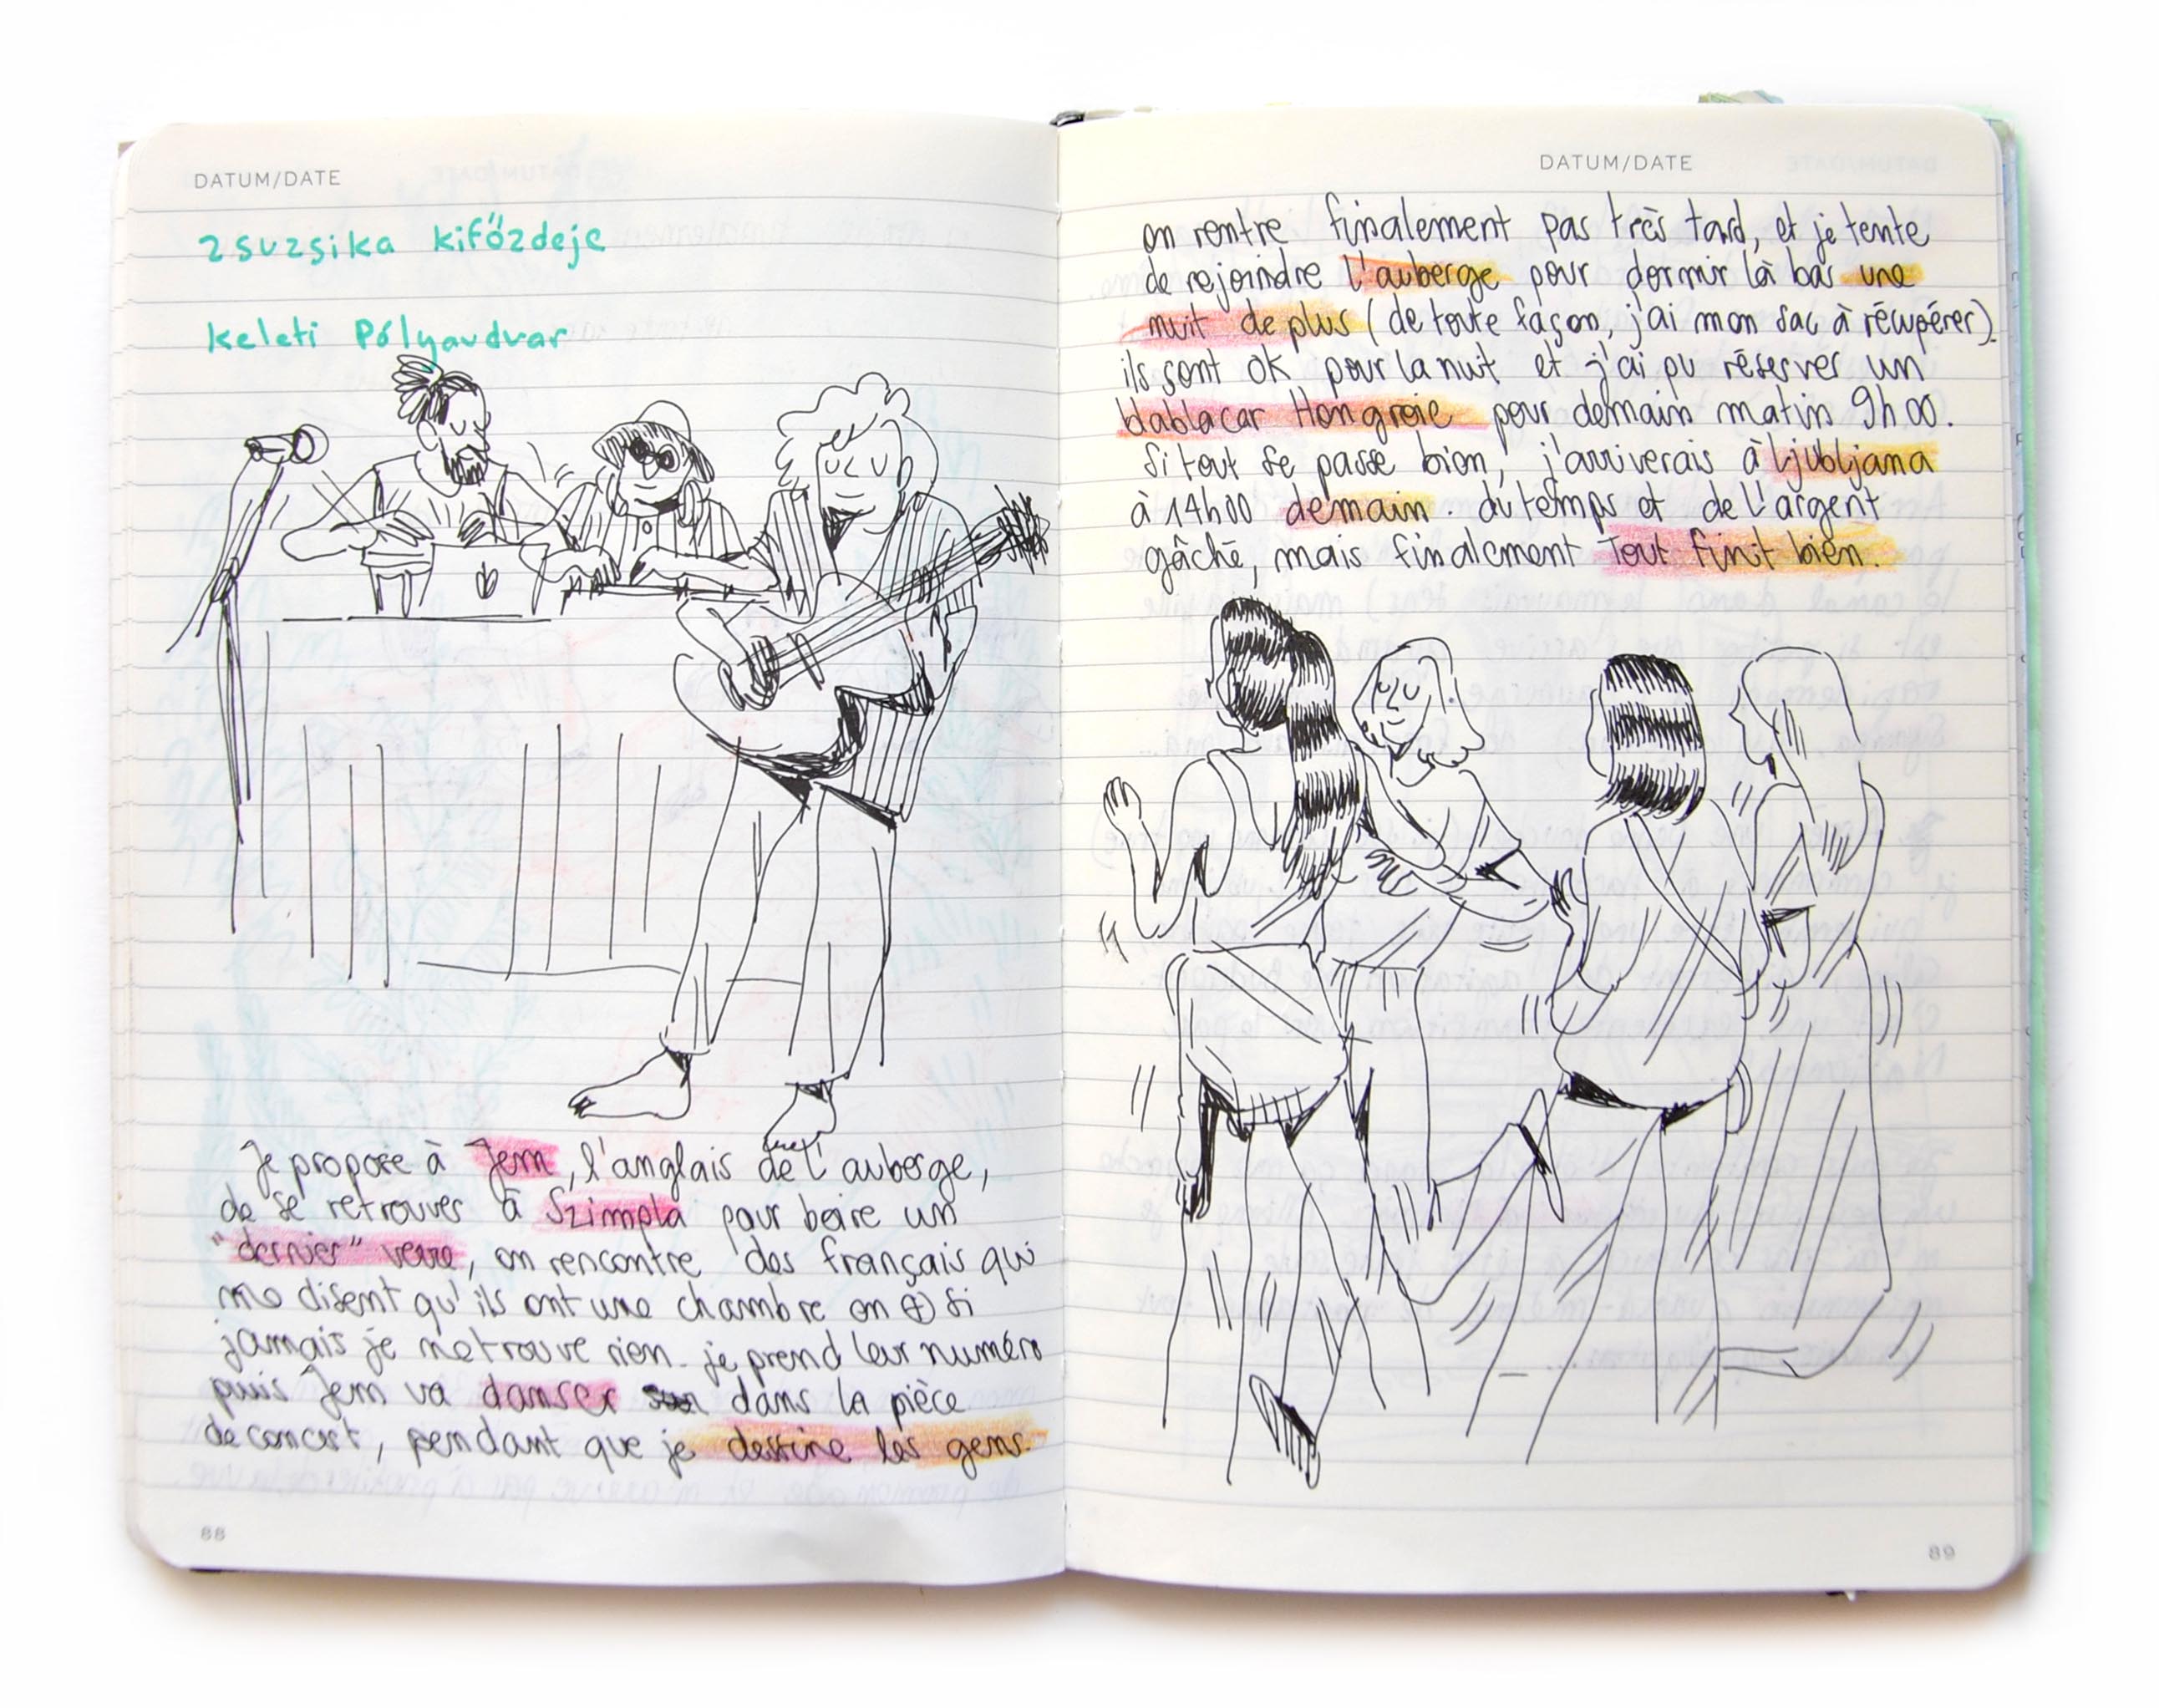 DATUM/DATE
zsuzsika kifőzdeje
keleti Pólyaudvar
Je propose à Jem, l'anglais de l'auberge,
de se retrouver à Szimpla pour boire un
"dernier" verre, on rencontre des français qui
me disent qu'ils ont une chambre en ⊕ si
jamais je ne trouve rien. je prend leur numéro
puis Jem va danser dans la pièce
de concert, pendant que je dessine les gens.
88
DATUM/DATE
on rentre finalement pas très tard, et je tente
de rejoindre l'auberge pour dormir là bas une
nuit de plus (de toute façon, j'ai mon sac à récupérer).
ils sont OK pour la nuit et j'ai pu réserver un
blablacar Hongroie pour demain matin 9h00.
Si tout se passe bien, j'arriverais à Ljubljana
à 14h00 demain. du temps et de l'argent
gâché, mais finalement Tout finit bien.
89